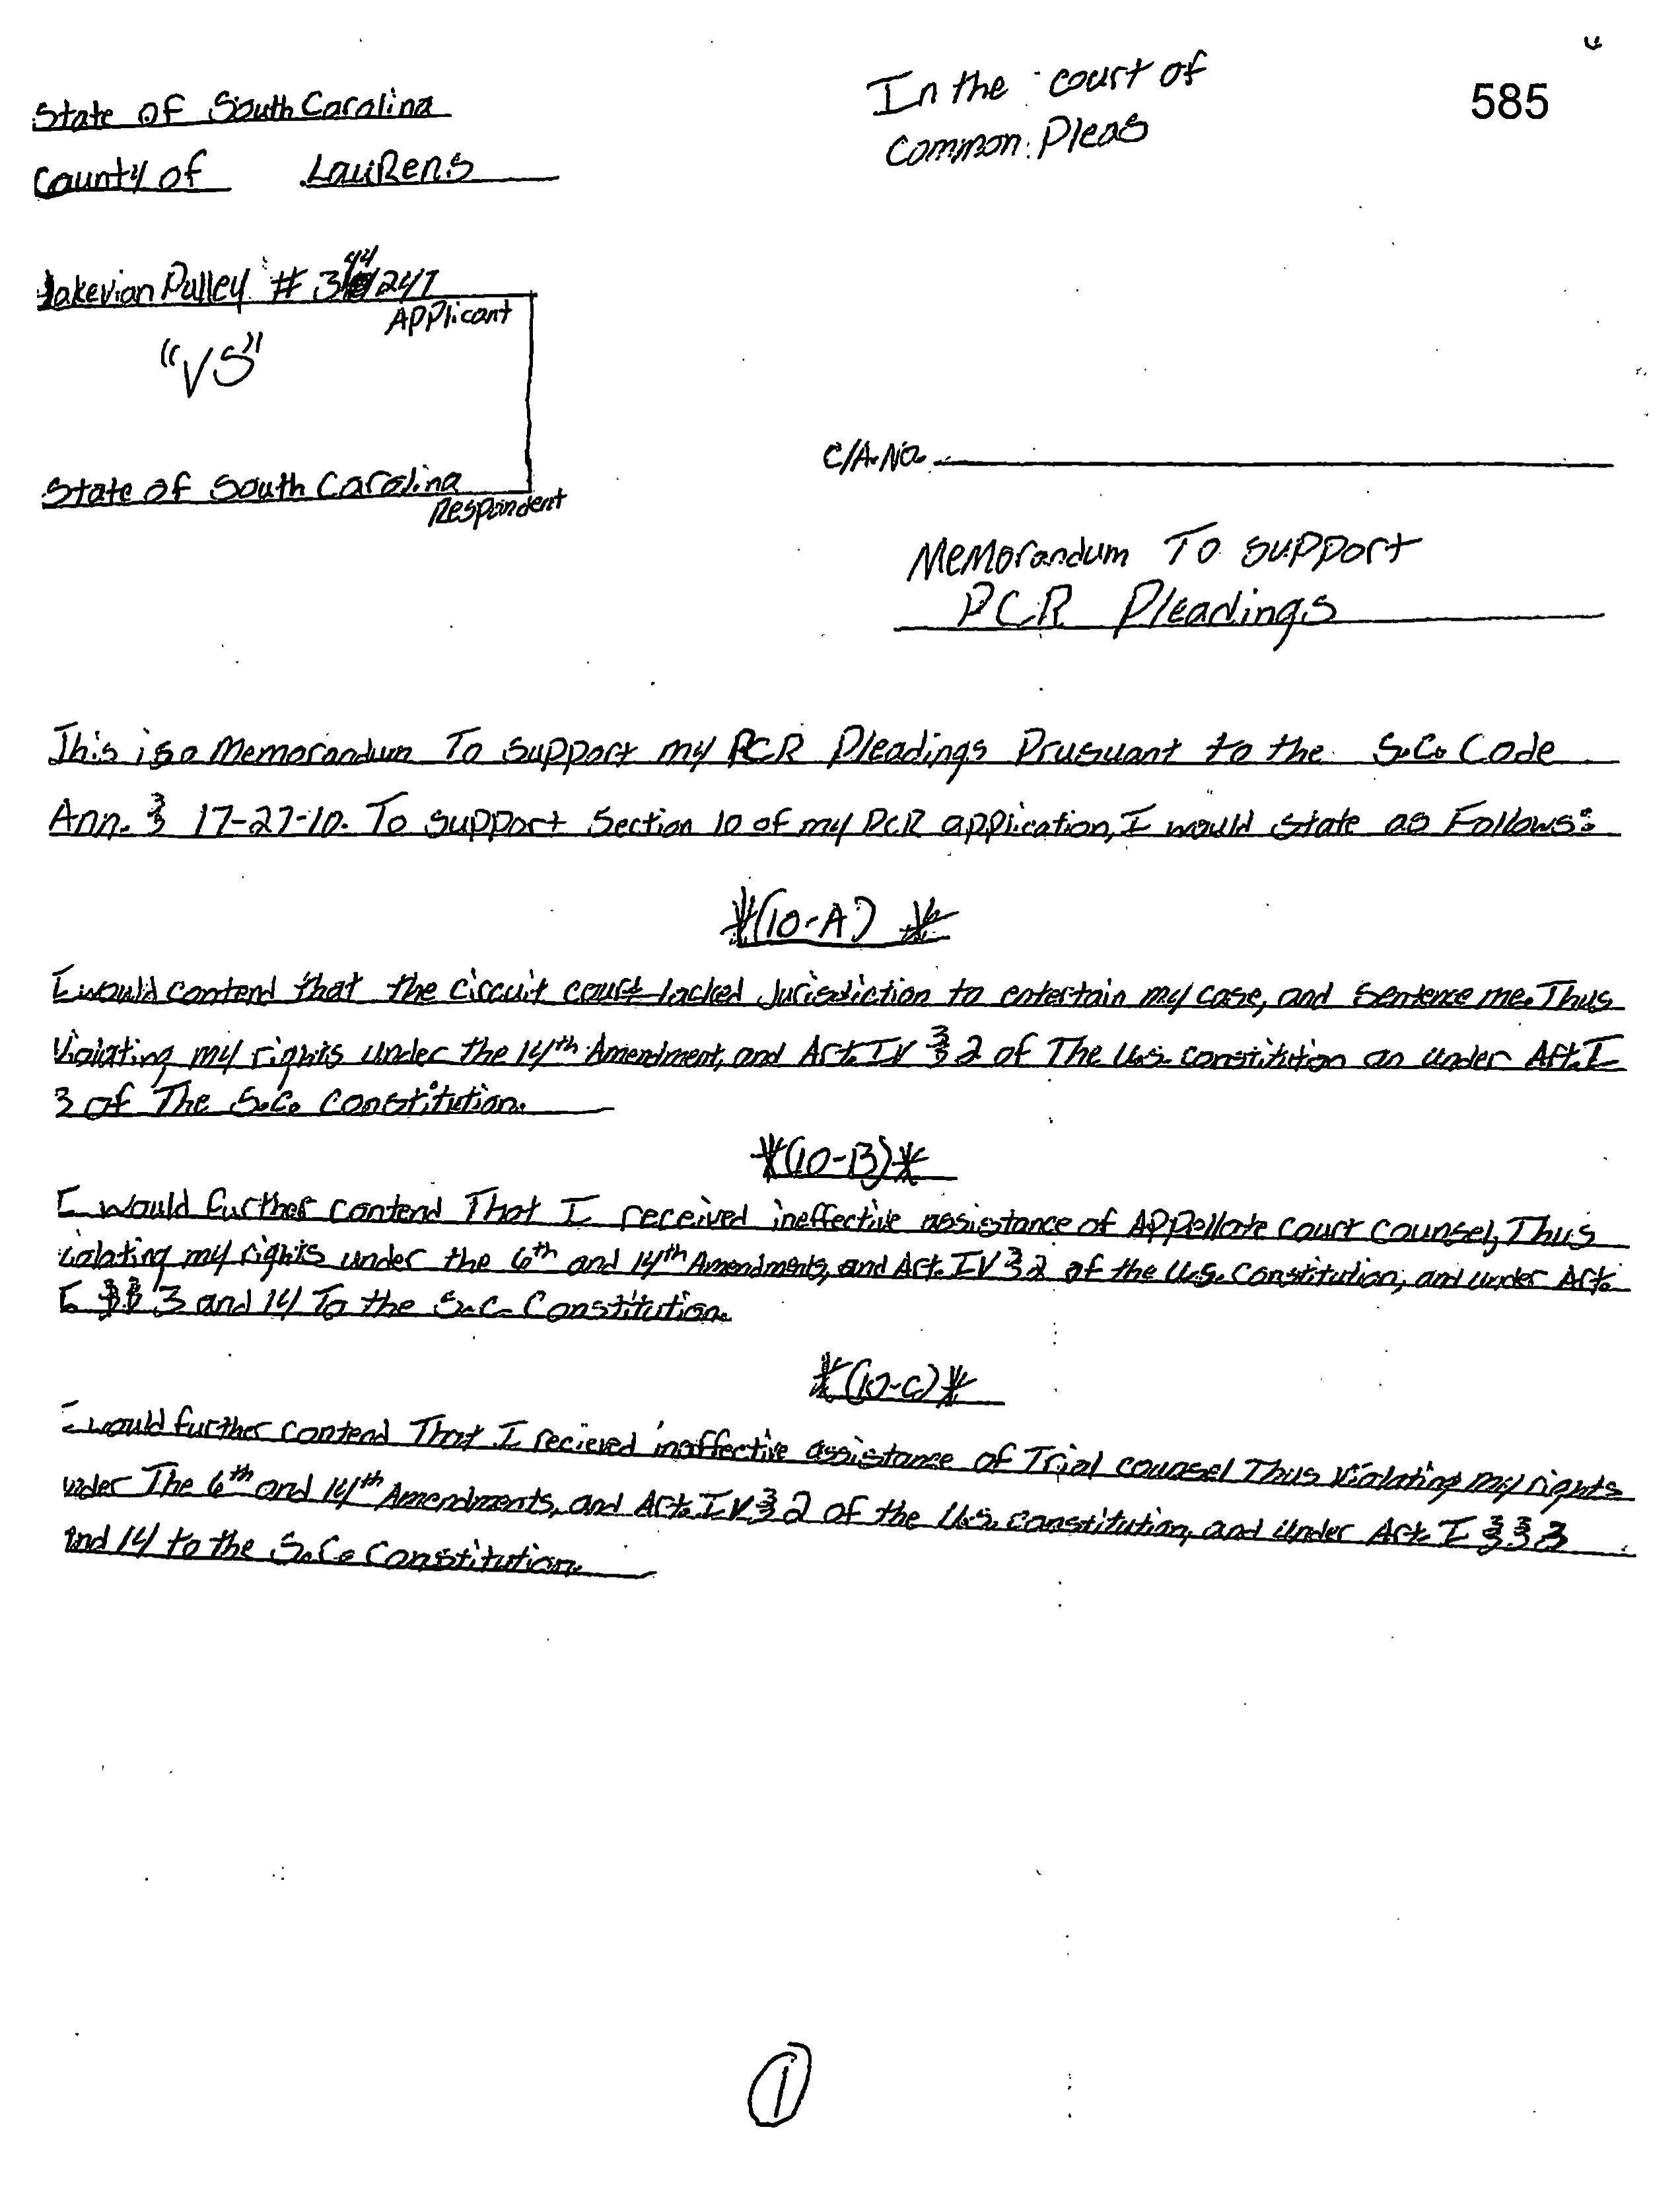 State of South Carolina
In the court of
585
County of LauRens
Common Pleas
Jakevian Pulley # 344247
Applicant
"VS"
C/A. No.
State of South Carolina
Respondent
Memorandum To support
PCR Pleadings
This is a Memorandum To Support my PCR Pleadings Prusuant to the S.C. Code
Ann. § 17-27-10. To support Section 10 of my PCR application, I would state as Follows:
*(10-A)*
I would contend that the circuit court lacked Jurisdiction to entertain my case, and sentence me. Thus
Violating my rights under the 14th Amendment, and Art. IV § 2 of The U.S. constitution an under Art. I
3 of The S.C. Constitution.
*(10-B)*
I would further contend That I received ineffective assistance of Appellate court counsel, Thus
violating my rights under the 6th and 14th Amendments, and Art. IV § 2 of the U.S. Constitution, and under Art.
I §§ 3 and 14 To the S.C. Constitution.
*(10-C)*
I would further contend That I recieved ineffective assistance of Trial counsel Thus Violating my rights
under The 6th and 14th Amendments, and Art. IV § 2 of the U.S. constitution, and under Art. I §§ 3
and 14 to the S.C. Constitution.
1